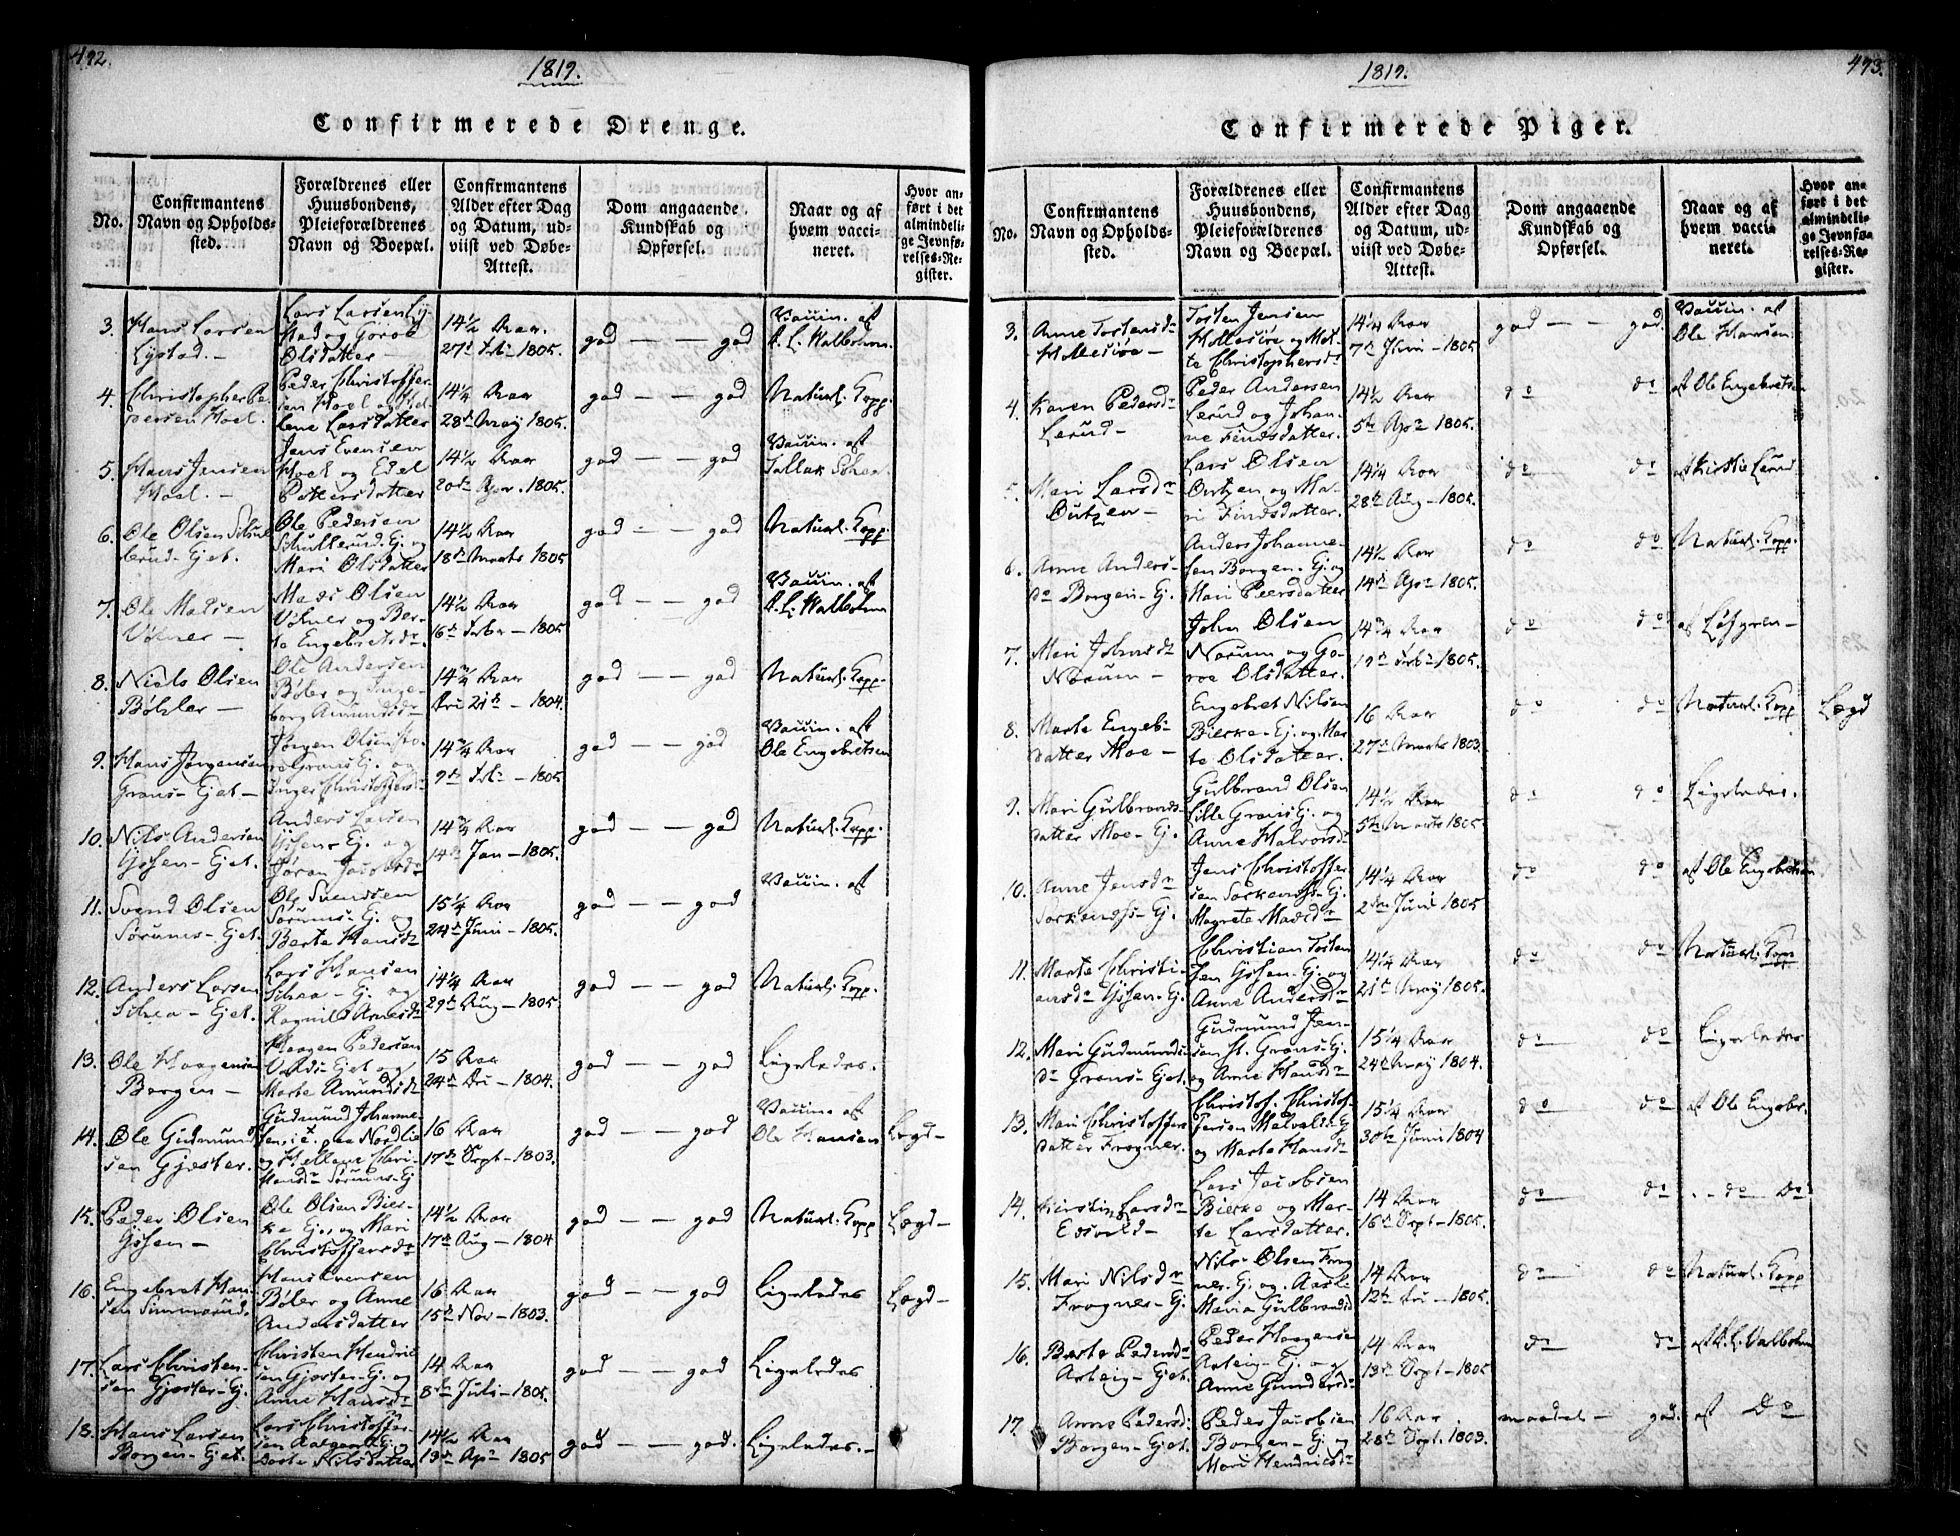 492.
1819.
Confirmerede Drenge.
No.
Confirmantens
Navn og Opholds-
sted.
Forældrenes eller
Huusbondens,
Pleieforældrenes
Navn og Boepæl.
Confirmantens
Alder efter Dag
og Datum, ud-
viist ved Døbe-
Attest.
Dom angaaende
Kundskab og
Opførsel.
Naar og af
hvem vacci-
neret.
Hvor an-
ført i det
almindeli-
ge Jevnfø-
relses-Re-
gister.
3. Hans Larsen
Lystad. —
Lars Larsen Ly-
stad og Goroe
Olsdatter —
14½ Aar.
27de Feb — 1805.
god — — god
Vaccin. af
A. L. Walbohm.
4. Christopher Pe-
dersen Hoel.
Peder Christoffer-
sen Hoel og He-
lene Larsdatter
14½ Aar
28de May 1805.
god — — god
Naturl. Kopp.
5. Hans Jensen
Hoel. —
Jens Evensen
Hoel og Edel
Pettersdatter
14½ Aar
20de Apr. 1805.
god — — god
Vaccin. af
6. Ole Olsen
Ejet.
Ole Pedersen
Ej. og
Mari Olsdatter
14½ Aar
18de Marts 1805
god — — god
Naturl. Kopp.
7. Ole Madsen
Vølner —
Mads Olsen
Vølner og Ber-
te Engebretsdr
14½ Aar
16de Febr — 1805
god — — god
Vaccin. af
A. L. Walbohm
8. Niels Olsen
Bøhler —
Ole Andersen
Bøler og Inge-
borg Amundsdr
14¾ Aar
21de — 1804.
god — — god
Naturl. Kopp.
9. Hans Jørgensen
Grans — Ejet —
Jørgen Olsen Sto-
re Grans Ej. og
Inger Christoffersdr
14¾ Aar
9de Feb — 1805.
god — — god
Vaccin. af
Ole Engebretsen
10. Nils Andersen
— Ejet.
Anders Larsen
Ej. og
Jøran Jacobsdr
14¾ Aar
14de Jan — 1805.
god — — god
Naturl. Kopp.
11. Svend Olsen
Sørums — Ejet.
Ole Svendsen
Sørums — Ej. og
Berte Hansdr
15¼ Aar
24de Juni — 1805.
god — — god
Vaccin. af
12. Anders Larsen
— Ejet.
Lars Hansen
— Ej. og
14¼ Aar
29de Aug — 1805
god — — god
Naturl. Kopp.
13. Ole Haagensen
Borgen —
Haagen Pedersen
Ejet og
Marte Amundsdr
15 Aar
24de — 1804.
god — — god
Ligeledes.
14. Ole Gudmund-
sen Gjester.
Gudmund Johanne-
paa Nordlie
og Hellene Chri-
Sørums — Ej
16 Aar
17de Sept — 1803.
god — — god
Vaccin. af
Ole Hansen
Lægd —
15. Peder Olsen
Ole Olsen Bier-
ke Ej. og Mari
Christoffersdr
14½ Aar
17de Aug — 1804
god — — god
Naturl. Kopp
Lægd —
16. Engebret Han-
sen
Hans Evensen
Bøler og Anne
Andersdatter
16 Aar
15de Nov — 1803.
god — — god
Ligeledes
Lægd —
17. Lars Christen-
sen Gjester — Ej.
Christen Hendrik-
sen Gjester — Ej. og
Anne Hansdr
14 Aar
8de Juli — 1805.
god — — god
Ligeledes
18. Hans Larsen
Borgen — Ejet.
Lars Christoffer-
sen Ej. og
Dorte Nilsdatter
14½ Aar
19de Apr — 1805
god — — god.
Ligeledes. —
493.
1819.
Confirmerede Piger.
No.
Confirmantens
Navn og Opholds-
sted.
Forældrenes eller
Huusbondens,
Pleieforældrenes
Navn og Boepæl.
Confirmantens
Alder efter Dag
og Datum, ud-
viist ved Døbe-
Attest.
Dom angaaende
Kundskab og
Opførsel.
Naar og af
hvem vacci-
neret.
Hvor an-
ført i det
almindeli-
ge Jevnfø-
relses-Re-
gister.
3. Anne Tostensdr
Hollesiøe —
Tosten Jensen
Hollesiøe og Mar-
te Christophersdr
14¼ Aar
7de Juni — 1805
god — — god.
Vaccin. af
Ole Hansen.
4. Karen Pedersdr
Lerud —
Peder Andersen
Lerud og Johan-
ne Findsdatter.
14½ Aar
5te Apr 1805.
do do
af Ole Engebretsen
5. Mari Larsdr
Lars Olsen
og Ma-
ri Findsdatter.
14¼ Aar
28de Aug — 1805.
do do
af Kirstie Lerud
6. Anne Anders-
dr Borgen — Ej.
Anders Johanne-
sen Borgen — Ej. og
Mari Peersdatter
14½ Aar
14de Apr 1805.
do do
Naturl. Kopp.
7. Mari Johnsdr
Norum —
John Olsen
Norum og Go-
roe Olsdatter.
14¾ Aar
19de Feb — 1805.
do do
af Løfgren —
8. Marte Engeb-
datter Moe —
Engebret Nilsen
Bierke — Ej. og Mar-
te Olsdatter.
16 Aar
27de Marts 1803.
do do
Naturl. Kopp
Lægd
9. Mari Gulbrands-
datter Moe — Ej.
Gulbrand Olsen
Lille Grans Ej. og
Anne Halvorsdr
14½ Aar
5te Marts 1805
do do
Ligeledes.
10. Anne Jensdr
— Ej.
Jens Christoffer
sen — Ej.
Magrete Madsdr
14¼ Aar
2den Juni 1805
do do
af Ole Engebretsen
11. Marte Christi-
ansdr — Ej.
Christian Tosten
sen — Ej. og
Anne Andersdr
14¼ Aar
21de May 1805.
do do
Naturl. Kopp
12. Mari Gudmunds-
dr Grans — Ejet.
Gudmund Jen-
sen St. Grans — Ej.
og Anne Hansdr
15¼ Aar
24de May 1804.
do do
Ligeledes
13. Mari Christoffers
datter Frogner.
Christof. Christof-
fersen Ej
og Marte Hansdr
15¼ Aar
30te Juni 1804
do do
af Ole Engebr.
14. Kierstin Larsdr
Lars Jacobsen
Bierke og Mar-
te Larsdatter.
14 Aar
16de Sept — 1805.
do do
. — do Do
15. Mari Nilsdr
Frogner — Ej.
Nils Olsen Frog
ner. Ej. og
Maria Gulbrandsd
14 Aar
12te — 1805.
do do
Naturl. Kopp
16. Berte Pedersdr
Asteig — Ejet.
Peder Haagensen
Asteig — Ej. og
Anne Gundersdr
14 Aar
13de Sept — 1805
do do
af A. L. Valbohm
17. Anne Pedersd.
Borgen — Ejet.
Peder Jacobsen
Borgen — Ej. og
Mari Hendricsdr
16 Aar
28de Sept. 1803.
maadel — god.
af Do